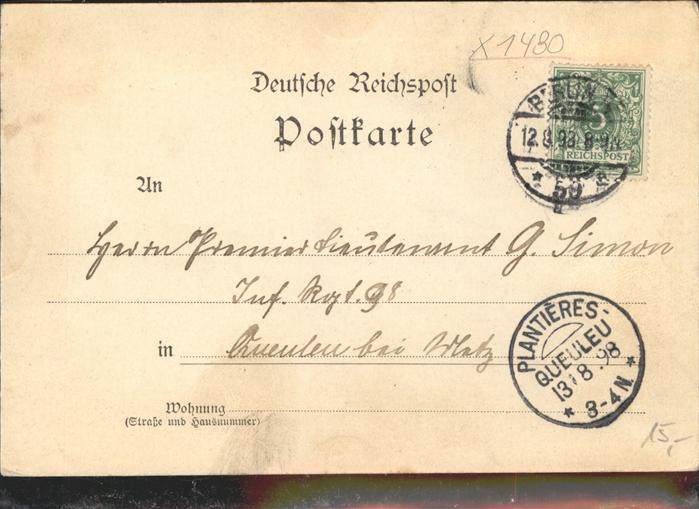 X 1480
Deutsche Reichspost
Postkarte
BERLIN
12.8.98. 8-9N.
* 59 *
a
5
REICHSPOST
An
Herrn Premier Lieutenant G. Simon
Inf. Rgt. 98
in Queulen bei Metz
PLANTIÈRES-
QUEULEU
13 8 98
* 3-4N. *
Wohnung
(Straße und Hausnummer)
15,-